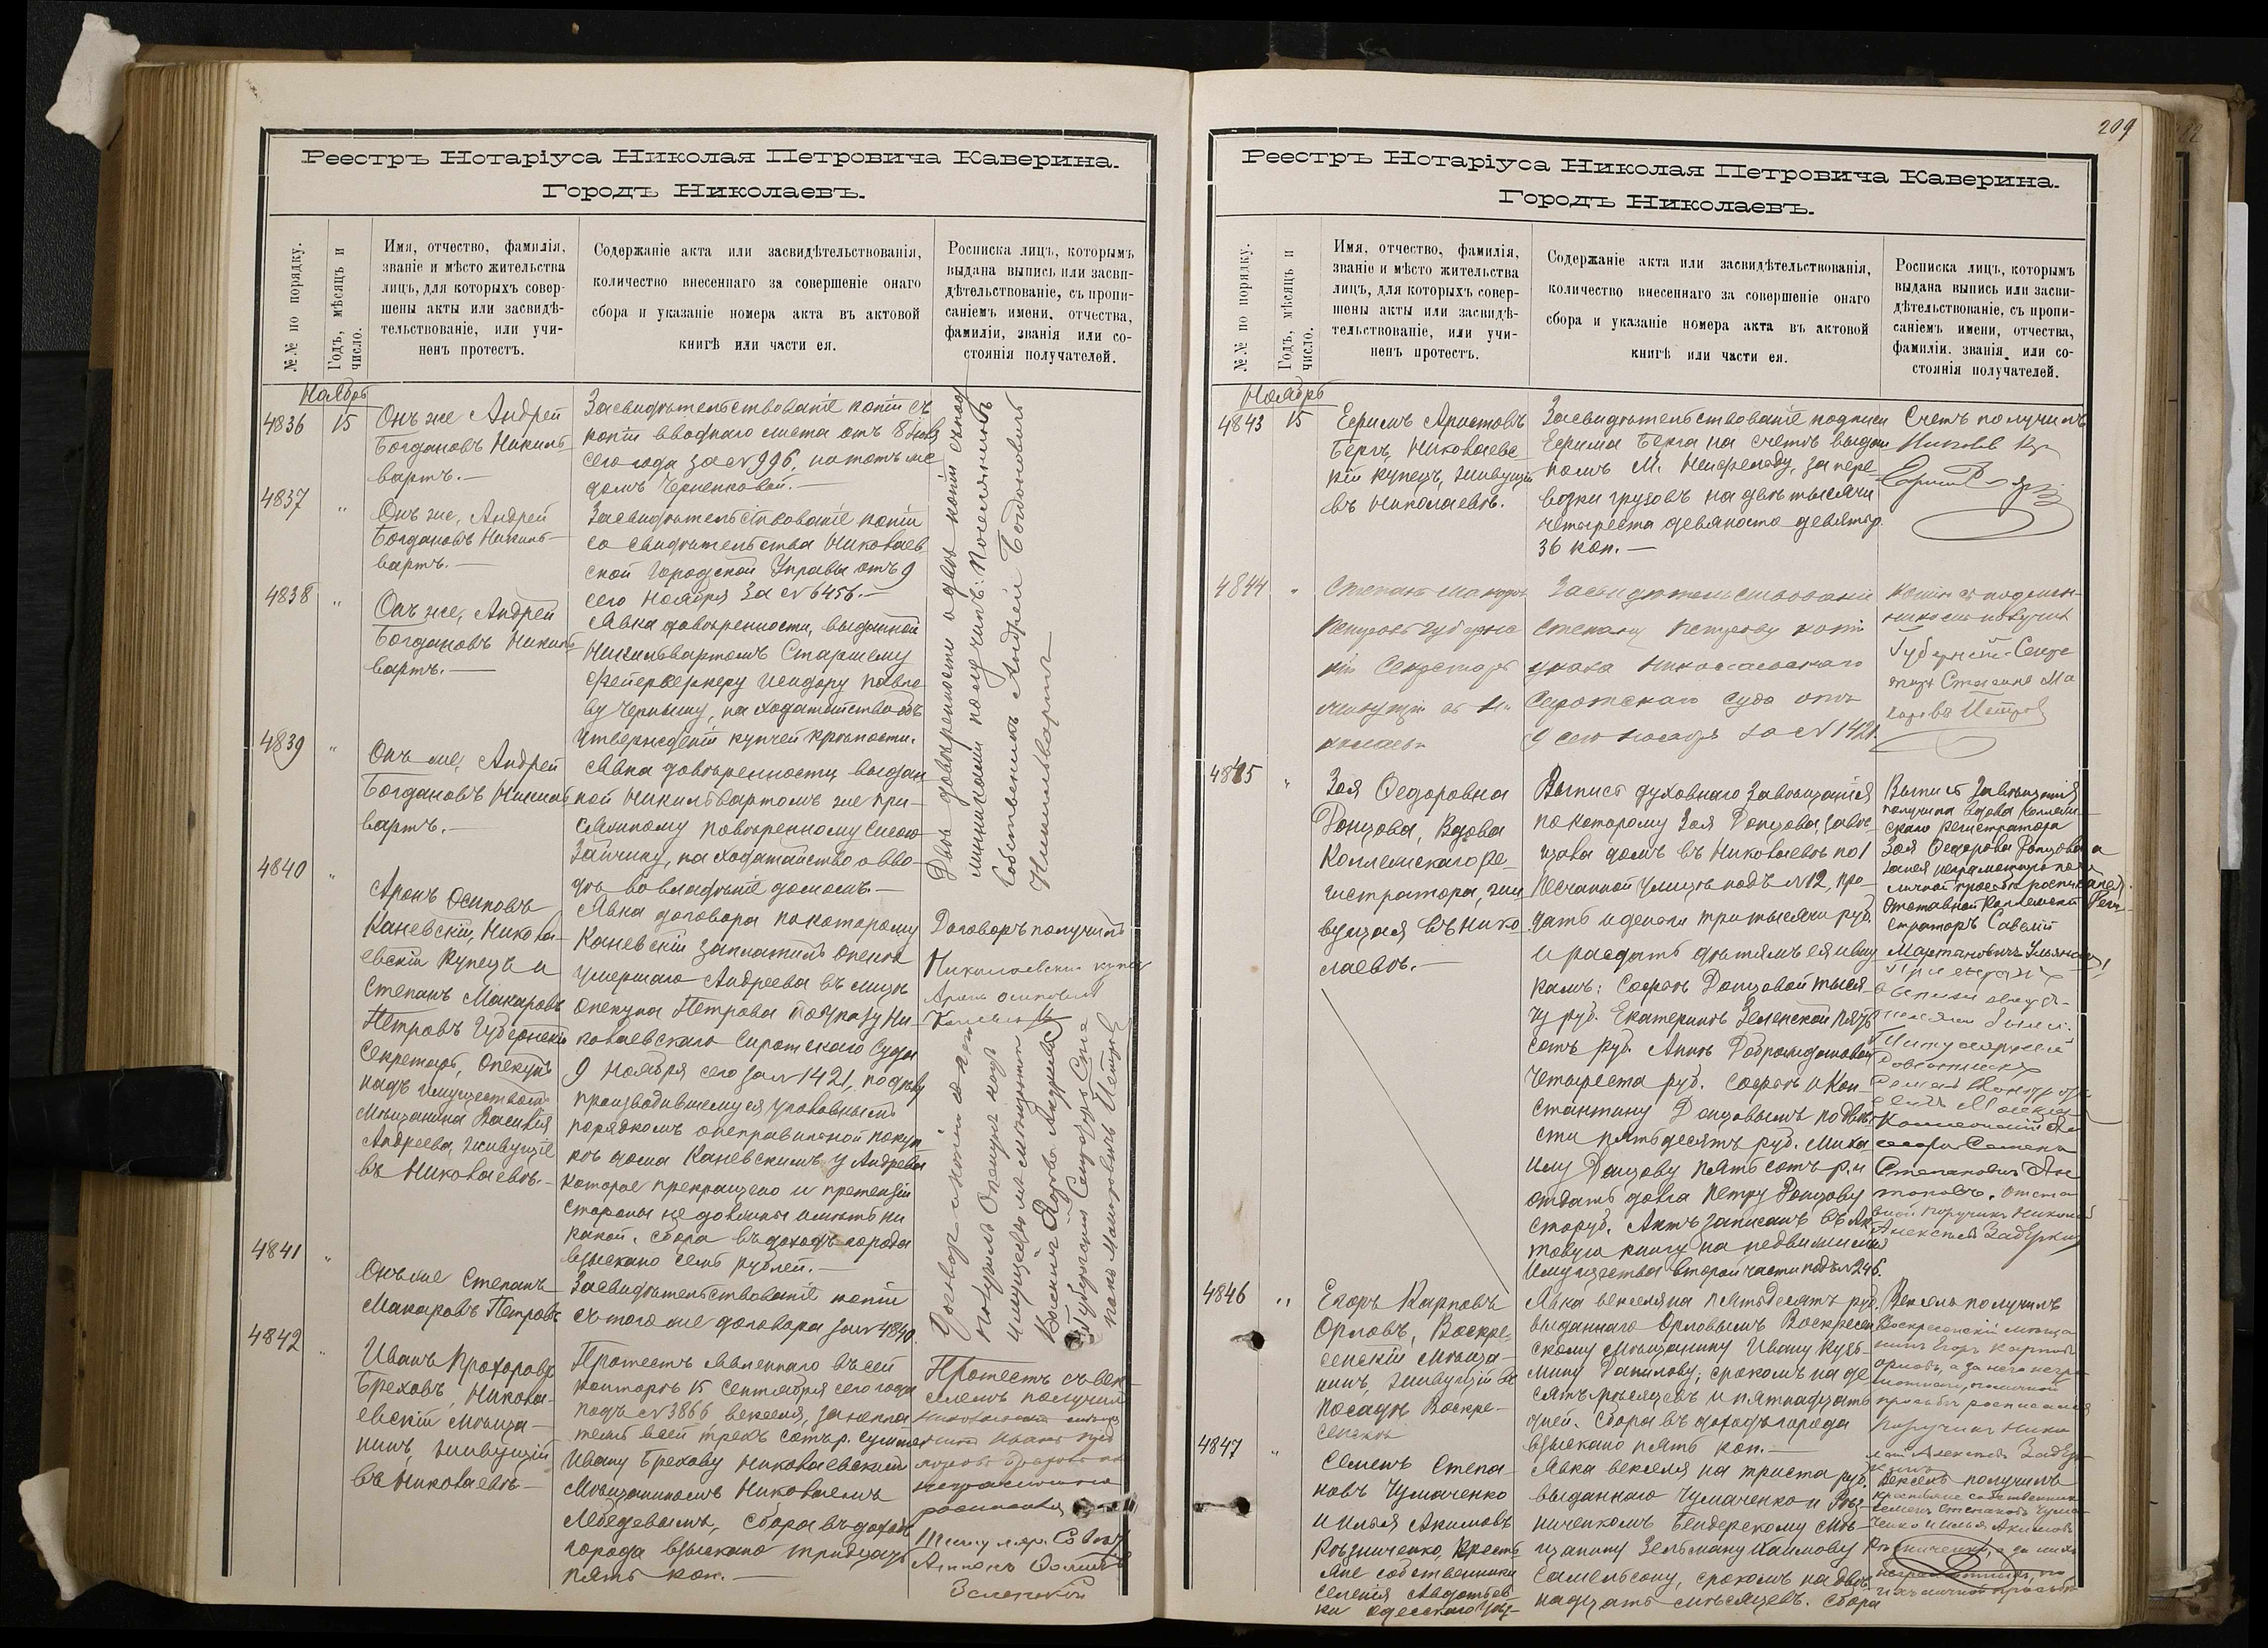 Реестръ Нотаріуса Николая Петровича Каверина.
Городъ Николаевъ.
№№ по порядку.
Годъ, мѣсяцъ и
число.
Имя, отчество, фамилія,
званіе и мѣсто жительства
лицъ, для которыхъ совер-
шены акты или засвидѣ-
тельствованіе, или учи-
ненъ протестъ.
Содержаніе акта или засвидѣтельствованія,
количество внесеннаго за совершеніе онаго
сбора и указаніе номера акта въ актовой
книгѣ или части ея.
Росписка лицъ, которымъ
выдана выпись или засви-
дѣтельствованіе, съ пропи-
саніемъ имени, отчества,
фамиліи, званія или со-
стоянія получателей.
Ноябрь
4836
15
Онъ же Андрей
Богдановъ
вартъ.—
Засвидѣтельствованіе копіи съ
копіи вводнаго листа отъ 8 Ноя
сего года за №996, на тотъ же
домъ Черненковой.—
4837
"
Онъ же, Андрей
Богдановъ
вартъ.—
Засвидѣтельствованіе копіи
со свидѣтельства Николаев
ской Городской Управы отъ 9
сего Ноября за №6456.—
4838
"
Онъ же, Андрей
Богдановъ
вартъ.—
Явка довѣренности, выданной
Старшему
Фейерверкеру
ву Черныму, на ходатайство объ
утвержденіи купчей крѣпости.
4839
"
Онъ же, Андрей
Богдановъ
вартъ.—
Явка довѣренности выдан
ной же при-
сяжному повѣренному
Зайчику, на ходатайство о вво-
дѣ во владѣніе домомъ.—
Двѣ довѣренности и двѣ копіи съ подл
линниками получилъ: Поселянинъ
Собственникъ Андрей Богдановичъ
4840
"
Аронъ Осиповъ
Каневскій, Никола-
евскій Купецъ и
Степанъ Макаровъ
Петровъ Губернскій
Секретарь, Опекунъ
надъ имуществомъ
Мѣщанина Василія
Андреева, живущіе
въ Николаевѣ.—
Явка договора по которому
Каневскій заплатилъ опекѣ
умершаго Андреева въ лицѣ
опекуна Петрова по указу Ни-
колаевскаго Сиротскаго Суда
9 Ноября сего за №1421, по дѣлу
производившемуся уголовнымъ
порядкомъ о неправильной покуп
кѣ дома Каневскимъ у Андреева
которое прекращено и претензіи
стороны не должны имѣть ни
какой. Сбора въ доходъ города
взыскано семь рублей.—
Договоръ получилъ
Николаевскій купец
Аронъ Осиповъ
Каневскій
4841
"
Онъ же Степанъ
Макаровъ Петровъ
Засвидѣтельствованіе копіи
съ того же договора за №4840.
Договоръ и копію
получилъ Опекунъ надъ
имуществомъ мѣщанина
Василія Андреева
Губернскій Секретарь Сте
панъ Макаровичъ Петровъ
4842
"
Иванъ Прохоровъ
Бреховъ, Никола-
евскій Мѣща-
нинъ, живущій
въ Николаевѣ—
Протестъ явленнаго въ сей
Конторѣ 15 Сентября сего года
подъ №3866 векселя, за непла
тежъ всей трехъ сотъ р. суммы
Ивану Брехову Николаевскимъ
Мѣщаниномъ Николаемъ
Лебедевымъ, Сбора въ доходъ
города взыскано тридцать
пять коп.—
Протестъ съ век-
селемъ получилъ
Иванъ
неграмотнаго
росписался
Титуляр. Совѣт
Антонъ
Зеленскій
209
Реестръ Нотаріуса Николая Петровича Каверина.
Городъ Николаевъ.
№№ по порядку.
Годъ, мѣсяцъ и
число.
Имя, отчество, фамилія,
званіе и мѣсто жительства
лицъ, для которыхъ совер-
шены акты или засвидѣ-
тельствованіе, или учи-
ненъ протестъ.
Содержаніе акта или засвидѣтельствованія,
количество внесеннаго за совершеніе онаго
сбора и указаніе номера акта въ актовой
книгѣ или части ея.
Росписка лицъ, которымъ
выдана выпись или засви-
дѣтельствованіе, съ пропи-
саніемъ имени, отчества,
фамиліи, званія или со-
стоянія получателей.
Ноябрь
4843
15
Ефимъ Аристовъ
Бергъ, Николаевс
кій купецъ, живущій
въ Николаевѣ.
Засвидѣтельствованіе подписи
Ефима Берга на счетѣ выдан
номъ М. за пере-
возки грузовъ на двѣ тысячи
четыреста девяносто девять р.
36 коп.—
Счетъ получилъ
4844
"
Степанъ Макаров
Петровъ Губернс
кій Секретарь
живущій въ Ни
колаевѣ
Засвидѣтельствованіе
Степану Петрову копіи
указа Николаевскаго
Сиротскаго Суда отъ
9 сего ноября за №1421.
Копію съ подлин-
никомъ получилъ
Губернскій Секре
тарь Степанъ Ма
каровъ Петровъ
4845
"
Зоя Ѳедоровна
Донцова, Вдова
Коллежскаго Ре-
гистратора, жи
вущая въ Нико
лаевѣ.—
Выпись духовнаго завѣщанія
по которому Зоя Донцова, завѣ-
щала домъ въ Николаевѣ по 1
Песчанной улицѣ подъ №12, про-
дать и деньги три тысячи руб.
и раздать дѣтямъ ея и вну
камъ: Софіи Донцовой тыся-
чу руб. Екатеринѣ Зеленской пять
сотъ руб. Аннѣ
четыреста руб. Софіи и Кон
стантину Донцовымъ по двѣ
сти пятьдесятъ руб. Миха
илу Донцову пять сотъ р. и
отдать долга Петру Донцову
сто руб. Актъ записанъ въ Ак
товую книгу на недвижимыя
имущества второй части подъ №245.
Выпись завѣщанія
получила вдова Коллеж-
скаго Регистратора
Зоя Ѳедорова Донцова а
за нея неграмотную по ея
личной просьбѣ росписался
Отставной Коллежскій Реги-
страторъ Савелій
При выдачѣ
выписи
были:
Титулярный
Семенъ
Степановичъ Ан
тоновъ. Отста
вной Поручикъ Николай
Алексѣевъ
4846
"
Егоръ Карповъ
Орловъ, Воскре-
сенскій Мѣща-
нинъ, живущій въ
посадѣ Воскре-
сенскѣ
Явка векселя на пятьдесятъ руб.
выданнаго Орловымъ Воскресен
скому Мѣщанину Ивану Кузь-
мину Данилову, срокомъ на де
сять мѣсяцевъ и пятнадцать
дней. Сбора въ доходъ города
взыскано пять коп.—
Вексель получилъ
Воскресенскій мѣща
нинъ Егоръ Карповъ
Орловъ, а за него негра
мотнаго, по личной
просьбѣ росписался
Поручикъ Нико
лай Алексѣевъ
4847
"
Семенъ Степа-
новъ Чумаченко
и Илья Акимовъ
Рѣзниченко, Кресть
яне собственники
селенія Авдотьев
ки Одесскаго Уѣз-
Явка векселя на триста руб.
выданнаго Чумаченко и Рѣз-
ниченкомъ Бендерскому Мѣ-
щанину Зельману Хаимову
Самельсону, срокомъ на две-
надцать мѣсяцевъ. Сбора
Вексель получилъ
крестьяне собственники
Семенъ Степановъ Чума-
ченко и Илья Акимовъ
Рѣзниченко, а за нихъ
неграмотныхъ, по
ихъ личной просьбѣ